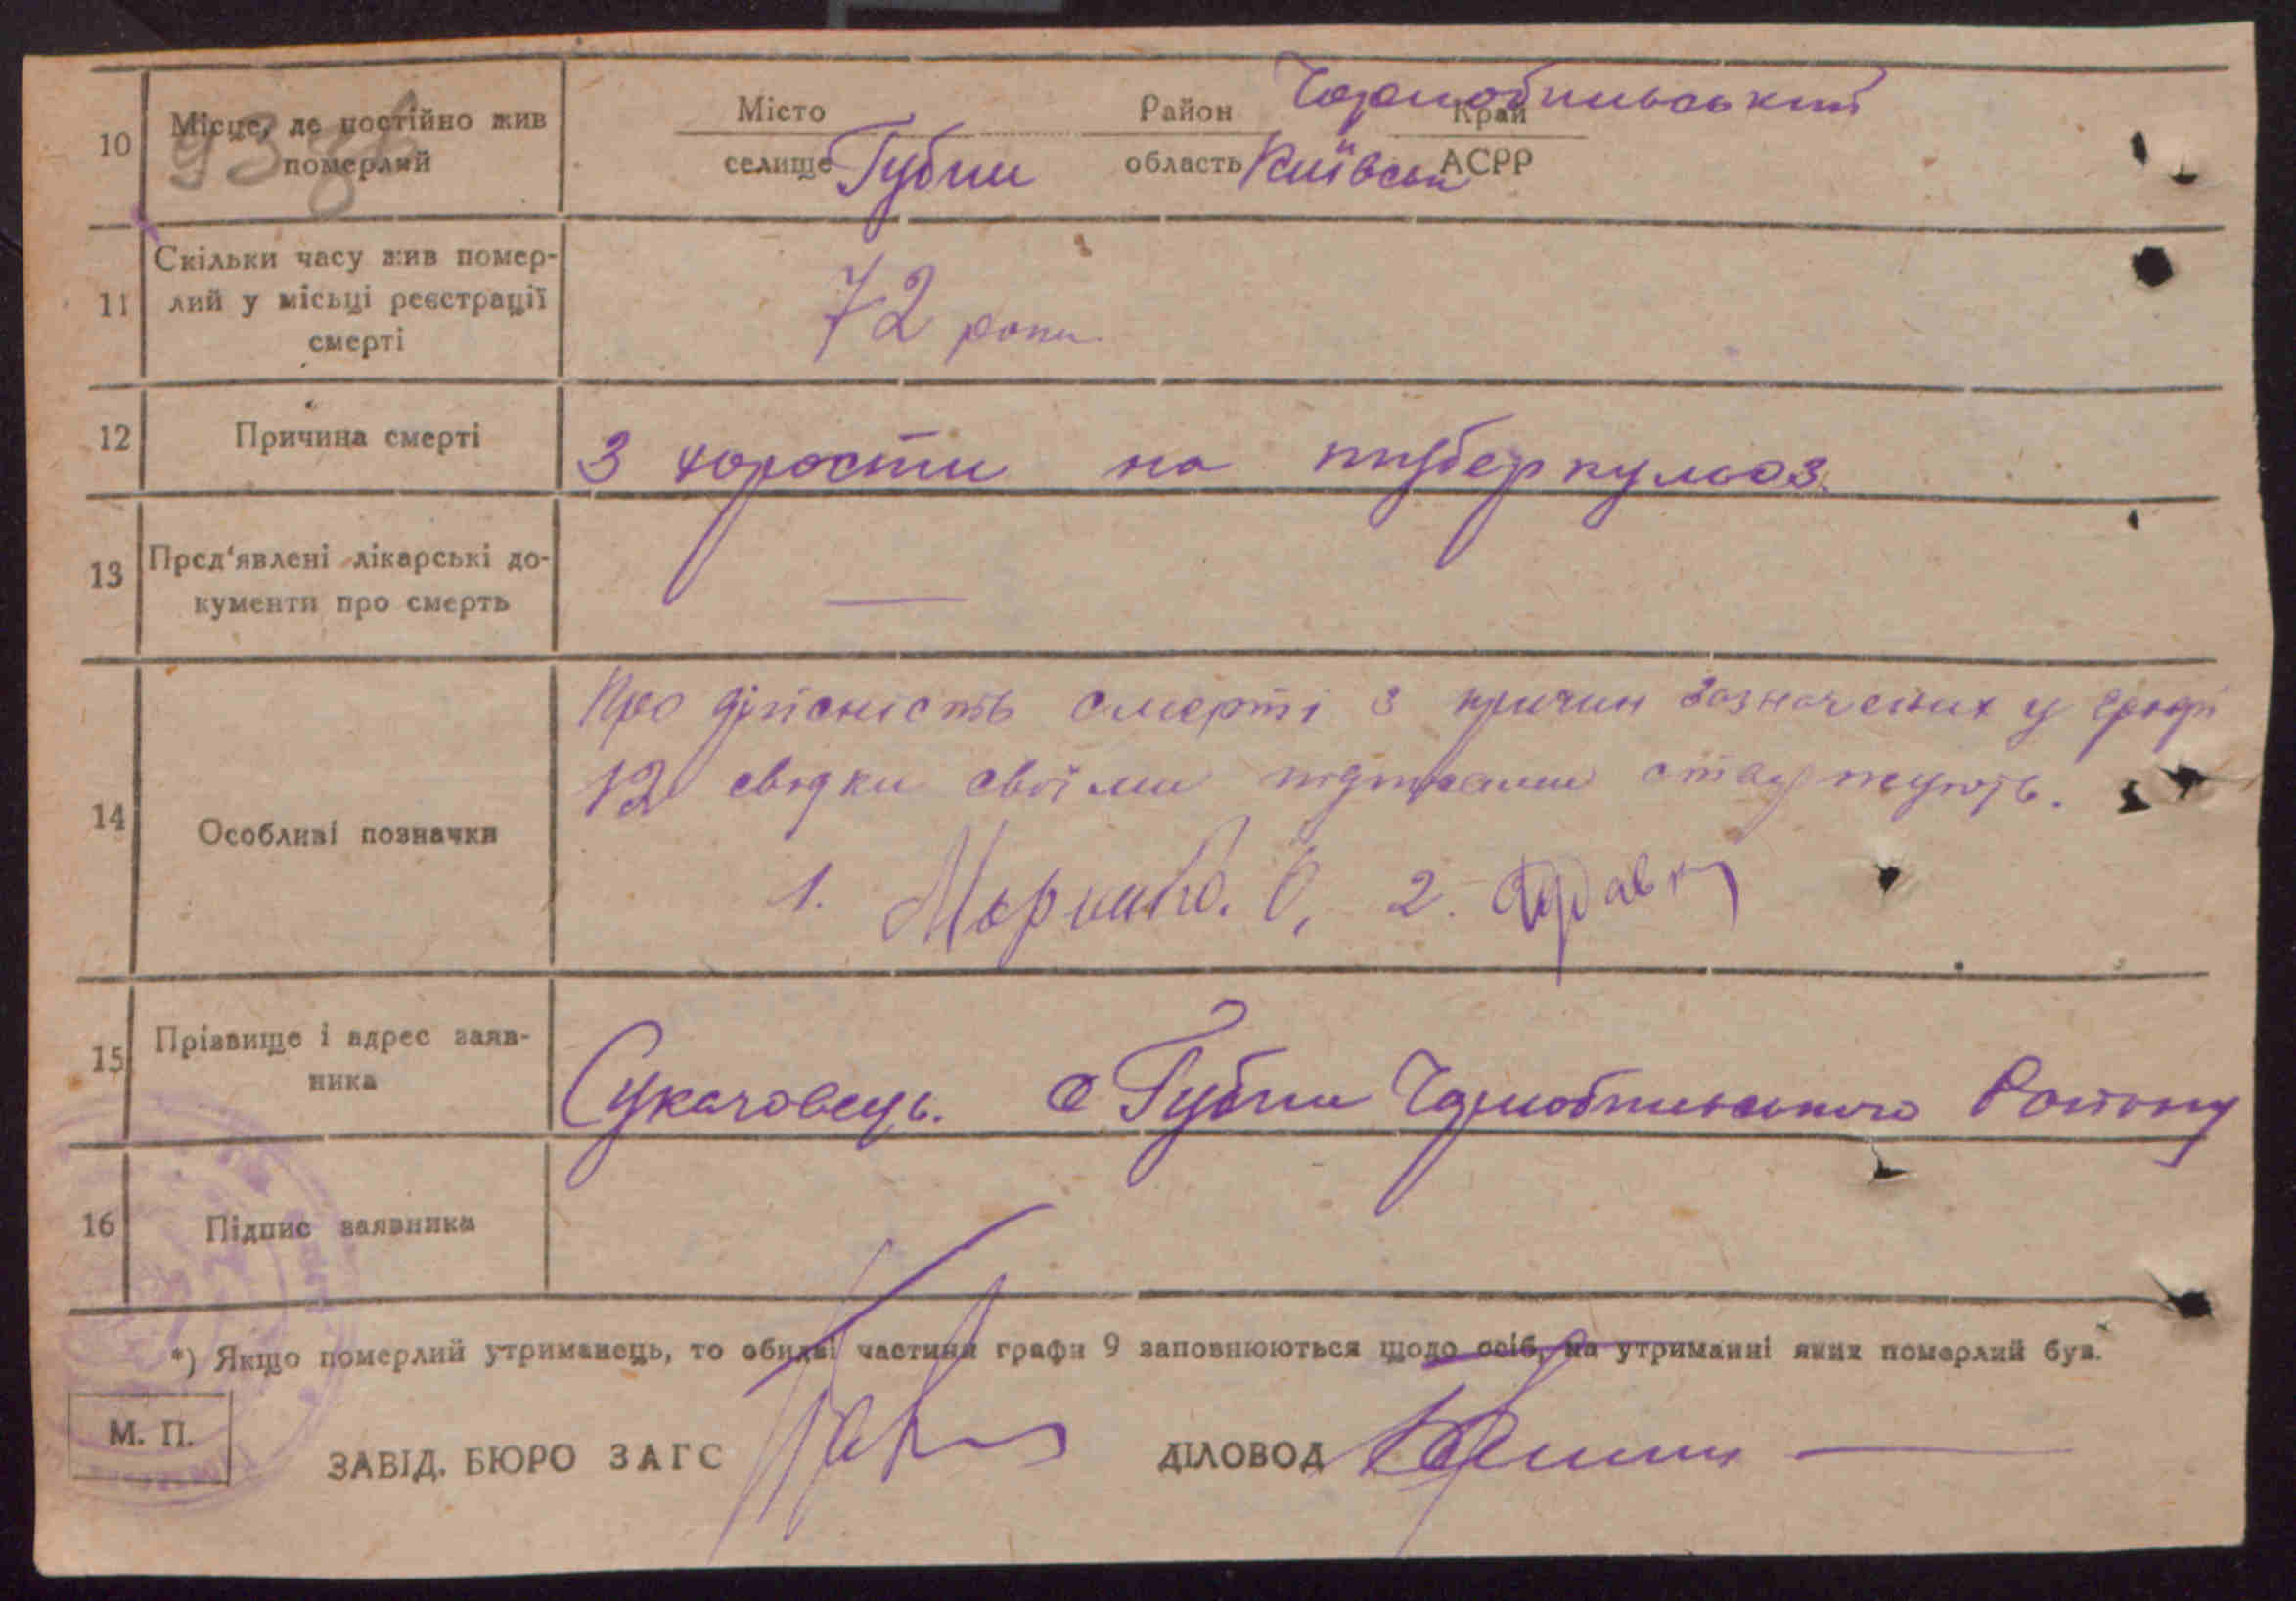 Чорнобильський
10 Місце, де постійно жив померлий
Місто селище Губин Район область Київськ Край АСРР
11 Скільки часу жив помер-
лий у місьці реєстрації
смерті
72 роки
12 Причина смерті
З хорости на туберкульоз.
13 Пред'явлені лікарські до-
кументи про смерть
—
14 Особливі позначки
Про дійсність смерті з причин зазначених у графі
12 свідки своїми підписами стверджують.
1. 2.
15 Прізвище і адрес заяв-
ника
Сукачовець. с Губин Чорнобильського Району
16 Підпис заявника
*) Якщо померлий утриманець, то обидві частини графи 9 заповнюються щодо осіб, на утриманні яких померлий був.
М. П.
ЗАВІД. БЮРО ЗАГС
ДІЛОВОД